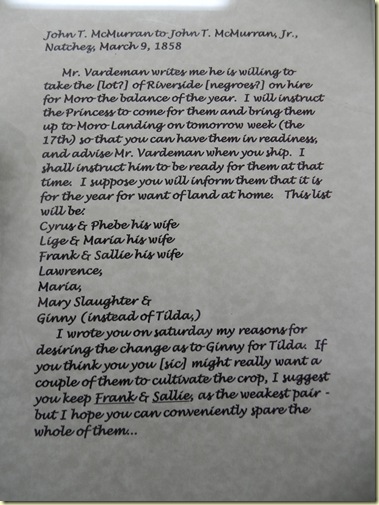 John T. McMurran to John T. McMurran, Jr.,
Natchez, March 9, 1858
Mr. Vardeman writes me he is willing to
take the [lot?] of Riverside [negroes?] on hire
for Moro the balance of the year. I will instruct
the Princess to come for them and bring them
up to Moro Landing on tomorrow week (the
17th) so that you can have them in readiness,
and advise Mr. Vardeman when you ship. I
shall instruct him to be ready for them at that
time. I suppose you will inform them that it is
for the year for want of land at home. This list
will be:
Cyrus & Phebe his wife
Lige & Maria his wife
Frank & Sallie his wife
Lawrence,
Maria,
Mary Slaughter &
Ginny (instead of Tilda,)
I wrote you on saturday my reasons for
desiring the change as to Ginny for Tilda. If
you think you you [sic] might really want a
couple of them to cultivate the crop, I suggest
you keep Frank & Sallie, as the weakest pair -
but I hope you can conveniently spare the
whole of them...